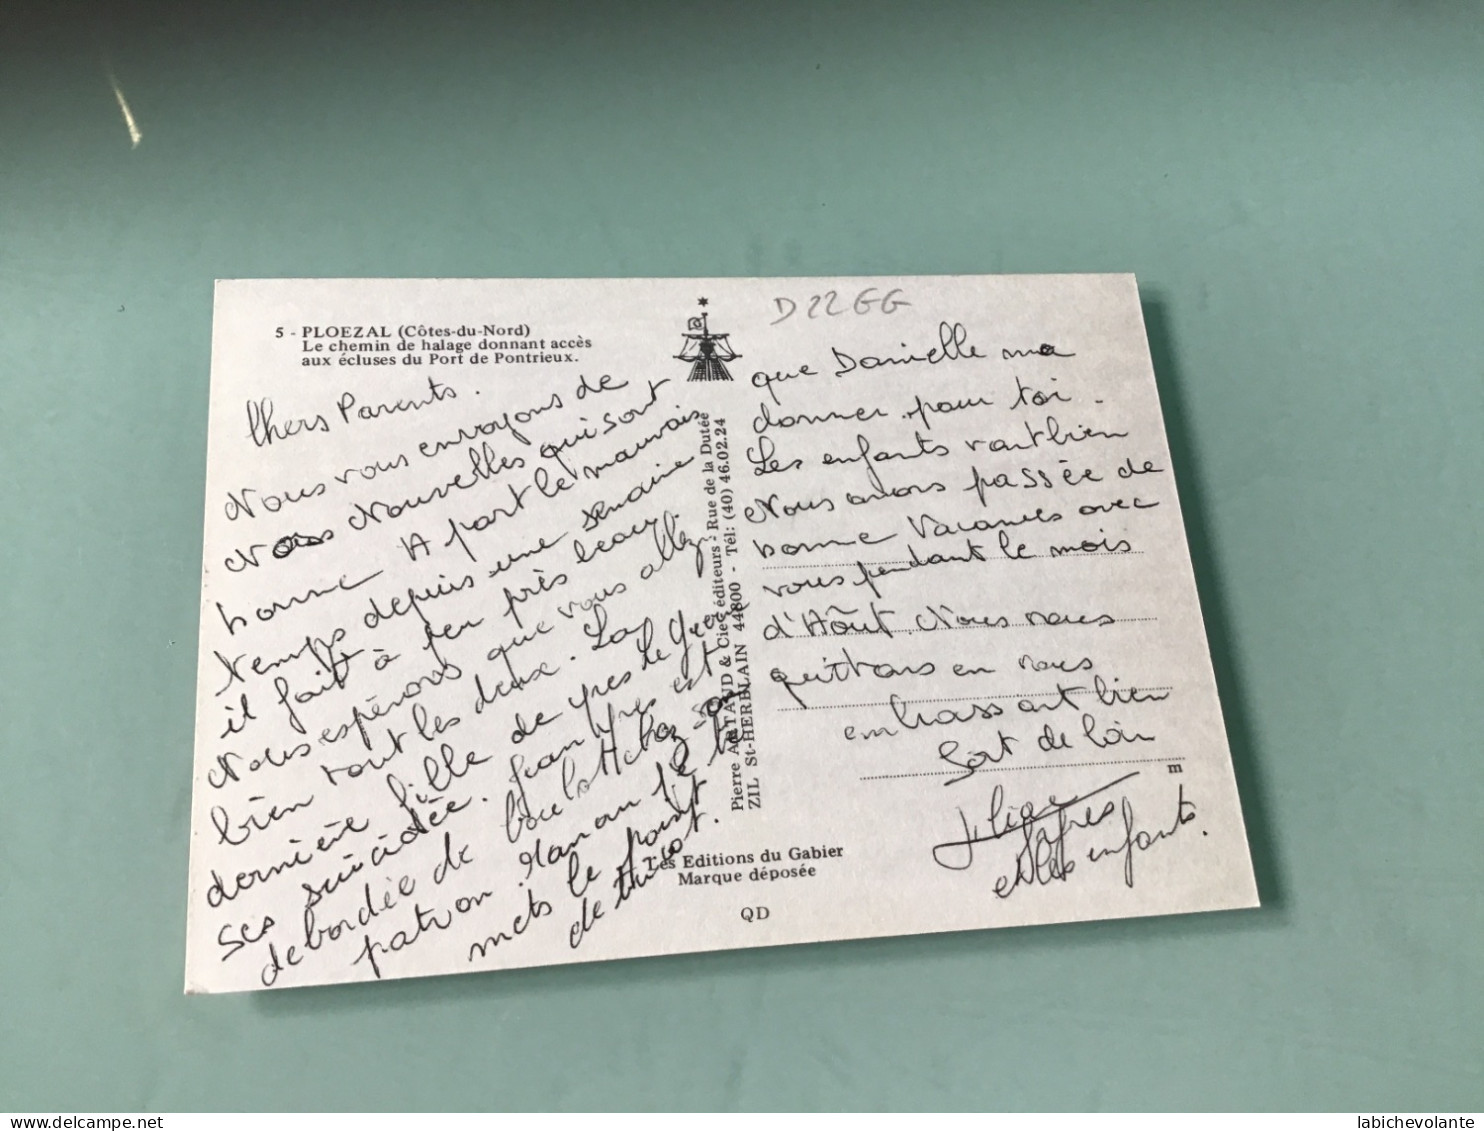 5 - PLOEZAL (Côtes-du-Nord)
Le chemin de halage donnant accès
aux écluses du Port de Pontrieux.
Chers Parents.
Nous vous envoyons de
Nos Nouvelles qui sont
bonne A part le mauvais
temps depuis une semaine
il fait à peu près beau.
Nous espérons que vous allez
bien tout les deux. La
dernière fille de yves le
ses suicidée. Jean yves est
debordée de boulot chez son
patron. Maman je
mets le point
de tricot.
Pierre ARTAUD & Cie - éditeurs - Rue de la Dutée
ZIL St-HERBLAIN 44800 - Tél: (40) 46.02.24
Les Editions du Gabier
Marque déposée
QD
D22GG
que Danielle ma
donner pour toi.
Les enfants vont bien
Nous avons passée de
bonne Vacances avec
vous pendant le mois
d'Aôut. Nous nous
quittons en vous
embrassant bien
fort de loin
m
et les enfants.
labichevolante
delcampe.net